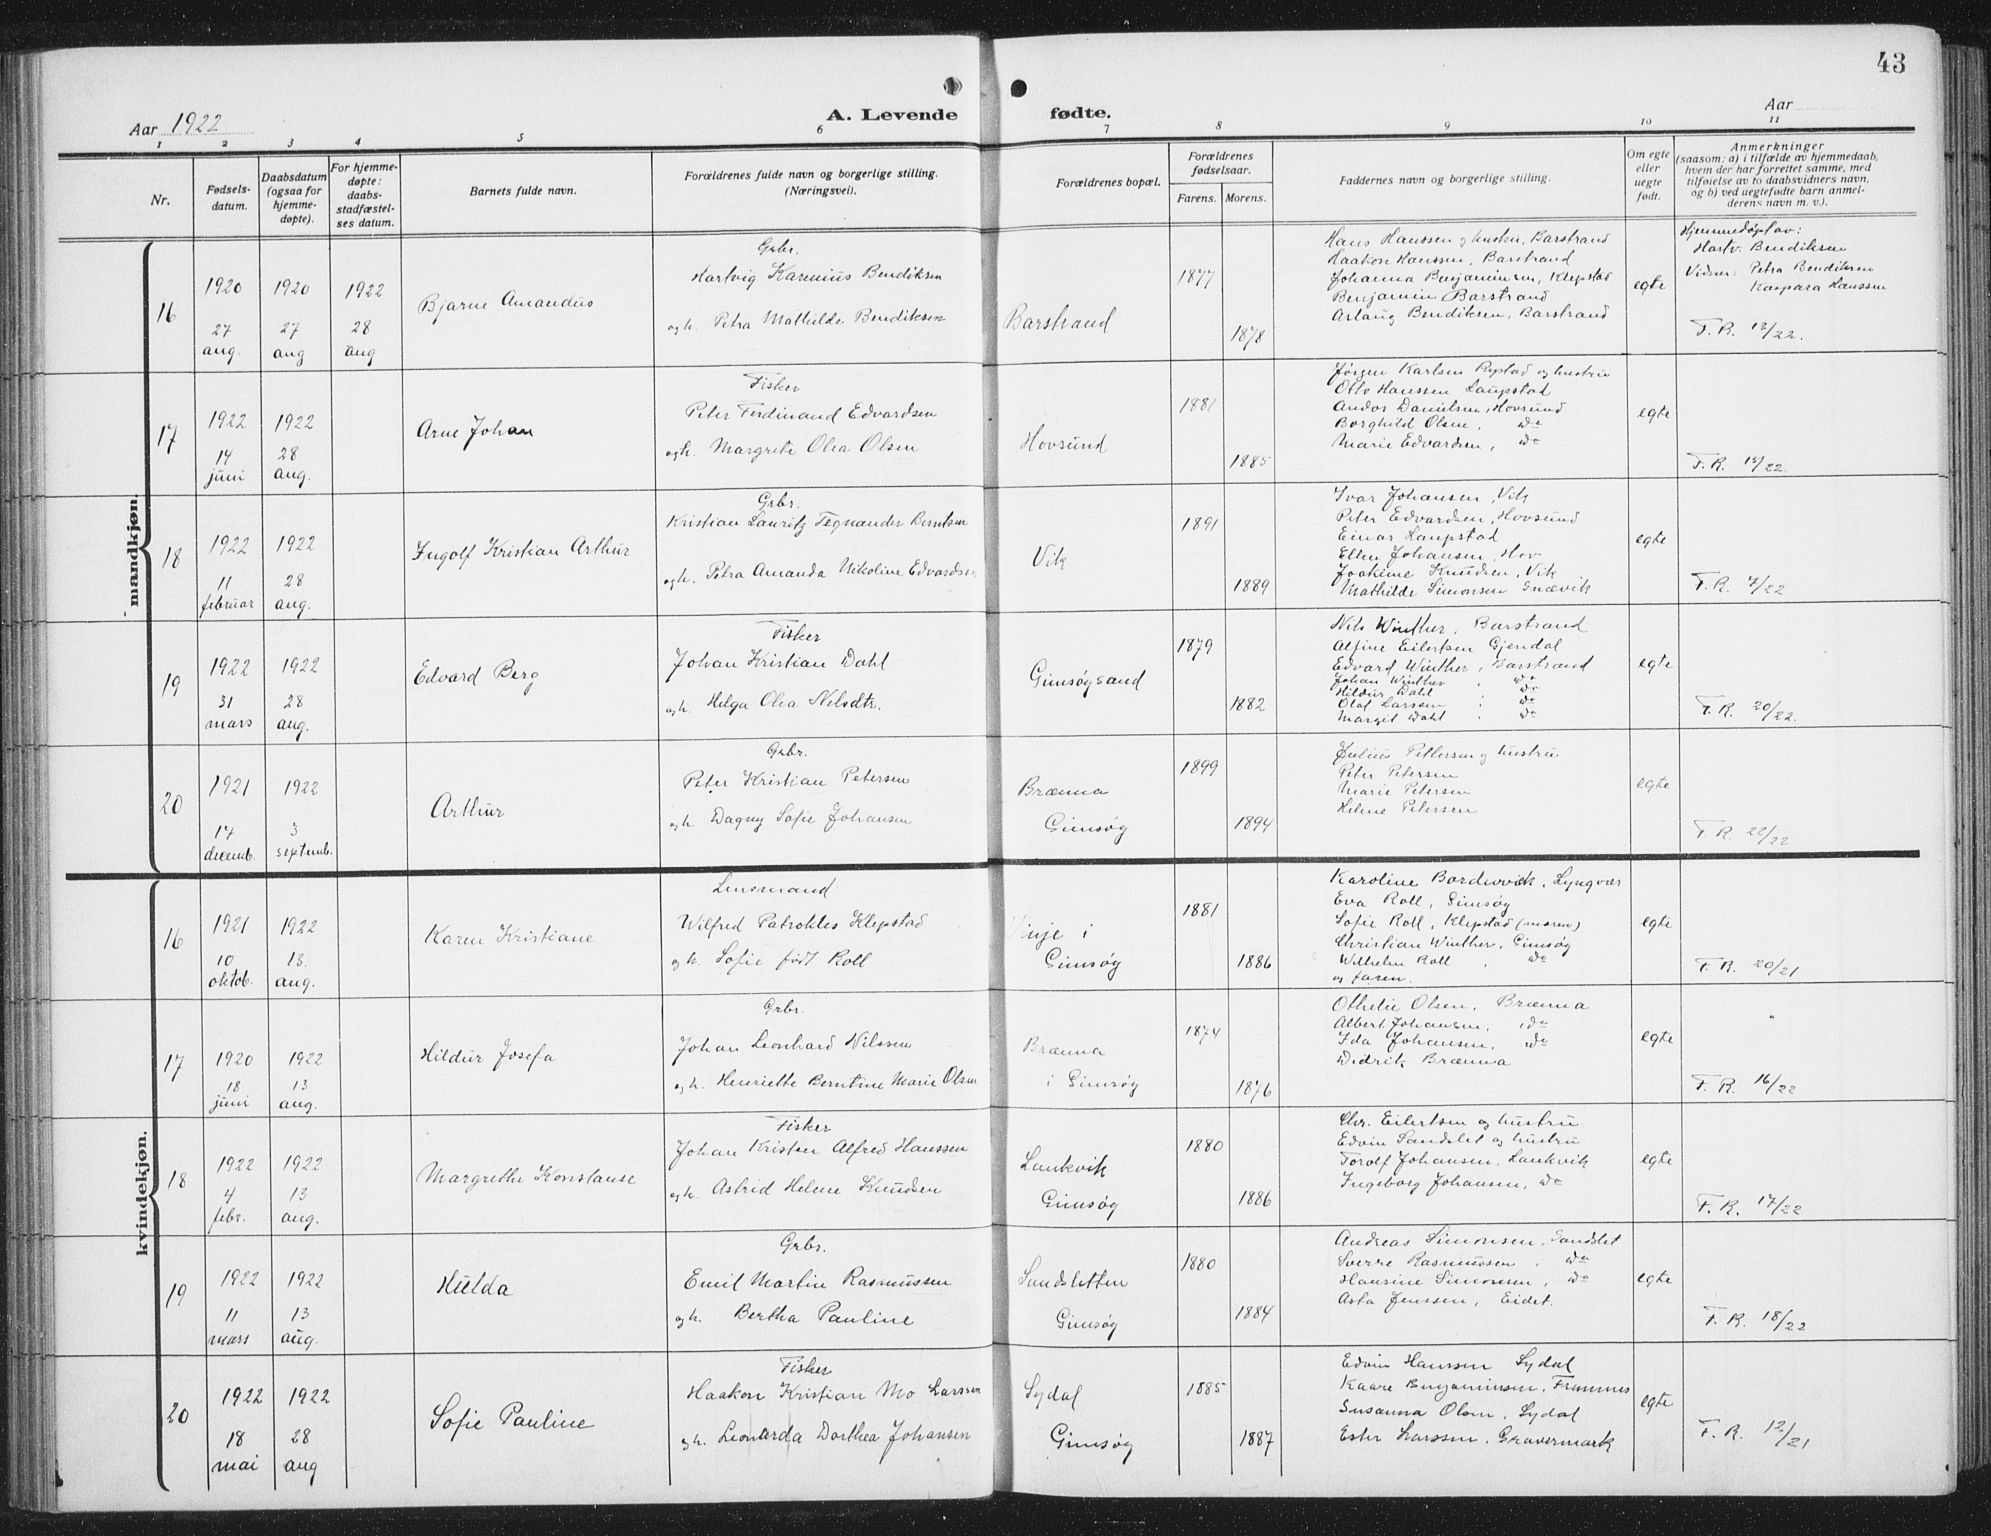 43
Aar 1922
A. Levende fødte.
Aar
1 2 3 4 5 6 7 8 9 10 11
Nr.
Fødsels-
datum.
Daabsdatum
(ogsaa for
hjemme-
døpte).
For hjemme-
døpte:
daabs-
stadfæstel-
ses datum.
Barnets fulde navn.
Forældrenes fulde navn og borgerlige stilling.
(Næringsvei).
Forældrenes bopæl.
Forældrenes
fødselsaar.
Farens. Morens.
Faddernes navn og borgerlige stilling.
Om egte
eller
uegte
født.
Anmerkninger
(saasom: a) i tilfælde av hjemmedaab,
hvem der har forrettet samme, med
tilføielse av to daabsvidners navn,
og b) ved uegtefødte barn anmel-
derens navn m. v.).
mandkjøn.
16
1920
27
aug.
1920
27
aug
1922
28
aug
Bjarne Amandus
Grbr.
Hartvig Karenius Bendiksen
og h. Petra Mathilde Bendiksen
Barstrand
1877
1878
Hans Hanssen og hustru, Barstrand
Haakon Hanssen, Barstrand
Johanna Benjaminsen, Klepstad
Benjamin Barstrand
Aslaug Bendiksen, Barstrand
egte
Hjemmedøpt av:
Hartv. Bendiksen
Vidner: Petra Bendiksen
Kaspara Hanssen
F. R. 13/22.
17
1922
14
juni
1922
28
aug.
Arne Johan
Fisker
Peter Ferdinand Edvardsen
og h. Margrete Olea Olsen
Hovsund
1881
1885
Jørgen Karlsen Rystad og hustru
Otto Hanssen Laupstad
Andos Danielsen, Hovsund
Borghild Olsen, do
Marie Edvardsen, do
egte
F. R. 15/22.
18
1922
11
februar
1922
28
aug.
Ingolf Kristian Arthur
Grbr.
Kristian Lauritz Tegnander Berntsen
og h. Petra Amanda Nikoline Edvardsen
Vik
1891
1889
Ivar Johansen, Vik
Peter Edvardsen, Hovsund
Einar Laupstad
Ellen Johansen, Hov
Joakime Knudsen, Vik
Mathilde Simonsen Snævik
egte
F. R. 7/22
19
1922
31
mars
1922
28
aug.
Edvard Berg
Fisker
Johan Kristian Dahl
og h. Helga Olea Nilsdtr.
Gimsøysand
1879
1882
Nils Winther, Barstrand
Alfine Eilertsen Gjendal
Edvard Winther, Barstrand
Johan Winther, do
Hildur Dahl, do
Olaf Larssen, do
Margit Dahl, do
egte
F. R. 20/22.
20
1921
14
decemb.
1922
3
septemb.
Arthur
Grbr.
Peter Kristian Petersen
og h. Dagny Sofie Johansen
Brænna
Gimsøy
1899
1894
Julius Pettersen og hustru
Peter Petersen
Marie Petersen
Helene Petersen
egte
F. R. 22/22
kvindekjøn.
16
1921
10
oktob.
1922
13.
aug.
Karen Kristiane
Lensmand
Wilfred Patrokles Klepstad
og h. Sofie født Roll
Vinje i
Gimsøy
1881
1886
Karoline Bordevvik, Lyngvær
Eva Roll, Gimsøy
Sofie Roll, Klepstad (moren)
Christian Winther, Gimsøy
Wilhelm Roll, do
og faren.
egte
F. R. 20/21
17
1920
18
juni
1922
13
aug.
Hildur Josefa
Grbr.
Johan Leonhard Nilssen
og h. Henriette Berntine Marie Olsen
Brænna
i Gimsøy
1874
1876
Othelie Olsen, Brænna
Albert Johansen, do
Ida Johansen, do
Didrik Brænna
egte
F. R. 16/22
18
1922
4
febr.
1922
13
aug.
Margrethe Konstanse
Fisker
Johan Kristen Alfred Hanssen
og h. Astrid Helene Knudsen
Lankvik
Gimsøy
1880
1886
Chr. Eilertsen og hustru
Edvin Sandslet og hustru
Torolf Johansen, Lankvik
Ingeborg Johansen, do
egte
F. R. 17/22
19
1922
11
mars
1922
13
aug.
Hulda
Grbr.
Emil Martin Rasmussen
og h. Bertha Pauline
Sandsletten
Gimsøy
1880
1884
Andreas Simonsen, Sandslet
Sverre Rasmussen, do
Hansine Simonsen, do
Asta Jenssen, Eidet.
egte
F. R. 18/22
20
1922
18
mai
1922
28
aug
Sofie Pauline
Fisker
Haakon Kristian Mo Larssen
og h. Leonarda Dorthea Johansen
Sydal
Gimsøy
1885
1887
Edvin Hanssen Sydal
Kaare Benjaminsen,
Susanna Olsen, Sydal
Ester Larssen, Gravermark
egte
F. R. 12/21